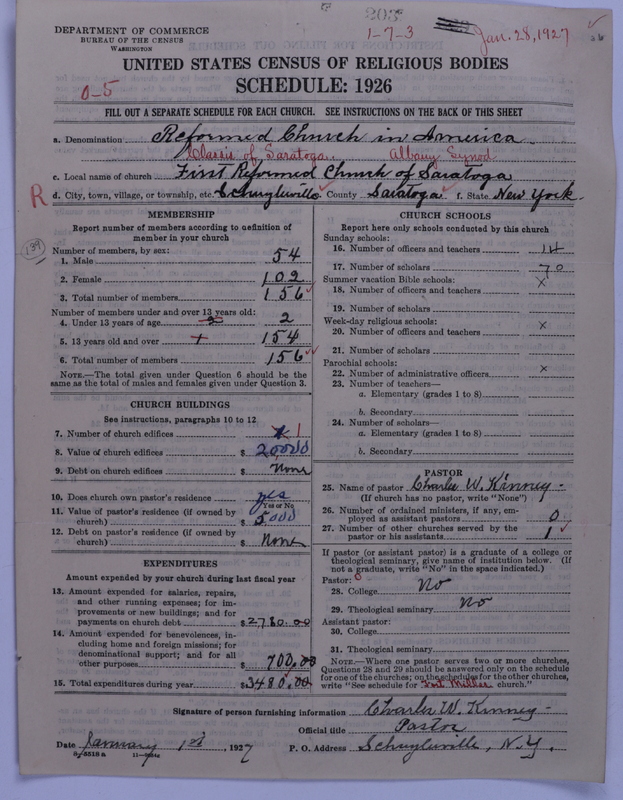 203
DEPARTMENT OF COMMERCE
BUREAU OF THE CENSUS
WASHINGTON
1-7-3
Jan. 28, 1927
UNITED STATES CENSUS OF RELIGIOUS BODIES
0-5
SCHEDULE: 1926
FILL OUT A SEPARATE SCHEDULE FOR EACH CHURCH. SEE INSTRUCTIONS ON THE BACK OF THIS SHEET
a. Denomination Reformed Church in America
Classis of Saratoga. Albany Synod
c. Local name of church First Reformed Church of Saratoga
R d. City, town, village, or township, etc. Schuylerville County Saratoga f. State New York.
139
MEMBERSHIP
Report number of members according to definition of
member in your church
Number of members, by sex:
1. Male 54
2. Female 102
3. Total number of members 156
Number of members under and over 13 years old:
4. Under 13 years of age 2
5. 13 years old and over 154
6. Total number of members 156
NOTE.—The total given under Question 6 should be
same as the total of males and females given under Question 3.
CHURCH BUILDINGS
See instructions, paragraphs 10 to 12
7. Number of church edifices 1
8. Value of church edifices $ 20000
9. Debt on church edifices $ None
10. Does church own pastor's residence yes
Yes or No
11. Value of pastor's residence (if owned by
church) $ 5000
12. Debt on pastor's residence (if owned by
church) $ None
EXPENDITURES
Amount expended by your church during last fiscal year
13. Amount expended for salaries, repairs,
and other running expenses; for im-
provements or new buildings; and for
payments on church debt $ 2780.00
14. Amount expended for benevolences, in-
cluding home and foreign missions; for
denominational support; and for all
other purposes $ 700.00
15. Total expenditures during year $ 3480.00
CHURCH SCHOOLS
Report here only schools conducted by this church
Sunday schools:
16. Number of officers and teachers 14
17. Number of scholars 70
Summer vacation Bible schools:
18. Number of officers and teachers x
19. Number of scholars
Week-day religious schools:
20. Number of officers and teachers x
21. Number of scholars
Parochial schools:
22. Number of administrative officers x
23. Number of teachers—
a. Elementary (grades 1 to 8)
b. Secondary
24. Number of scholars—
a. Elementary (grades 1 to 8)
b. Secondary
PASTOR
25. Name of pastor Charles W. Kinney-
(If church has no pastor, write "None")
26. Number of ordained ministers, if any, em-
ployed as assistant pastors 0
27. Number of other churches served by the
pastor or his assistants 1
If pastor (or assistant pastor) is a graduate of a college or
theological seminary, give name of institution below. (If
not a graduate, write "No" in the space indicated.)
Pastor:
28. College No
29. Theological seminary No
Assistant pastor:
30. College
31. Theological seminary
NOTE.—Where one pastor serves two or more churches,
Questions 28 and 29 should be answered only on the schedule
for one of the churches; on the schedules for the other churches,
write "See schedule for Fort Miller church."
Signature of person furnishing information Charles W. Kinney-
Official title Pastor
Date January 1st, 1927 P. O. Address Schuylerville, N.Y.